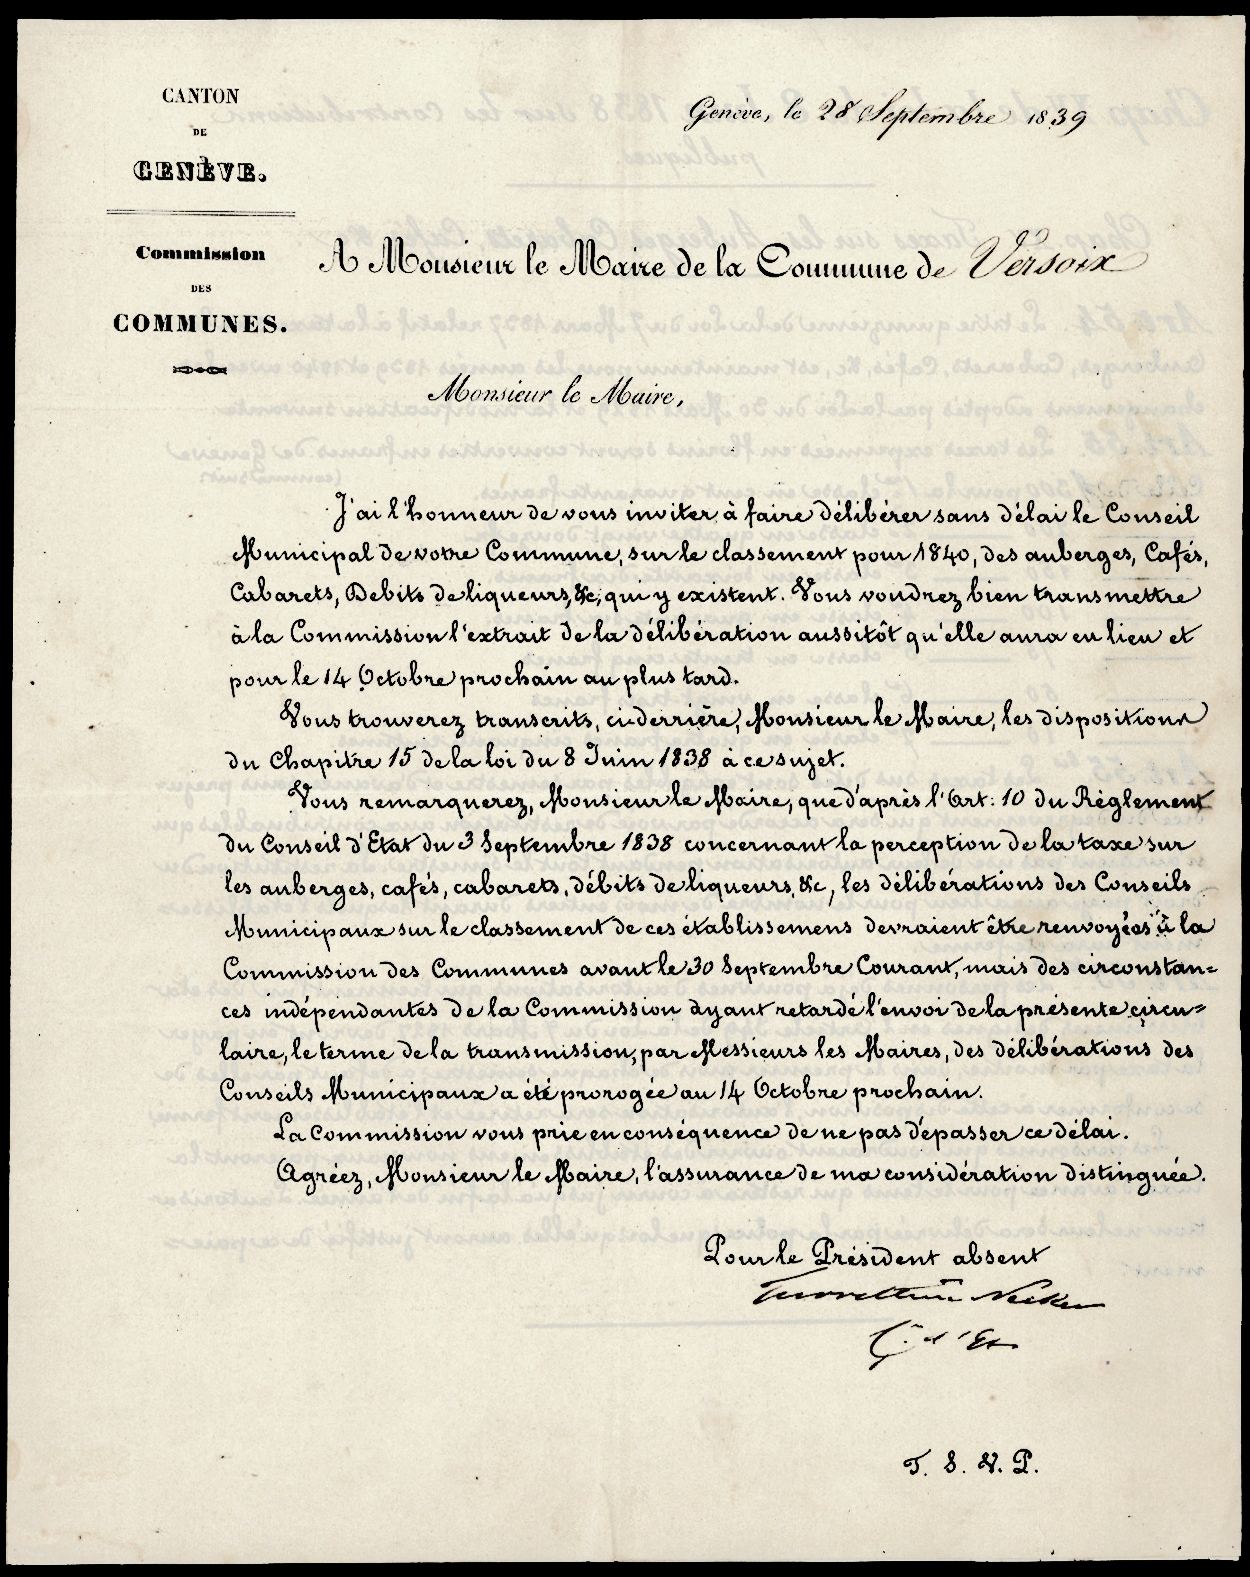 CANTON
DE
GENÈVE.
Commission
DES
COMMUNES.
Genève, le 28 Septembre 1839
A Monsieur le Maire de la Commune de Versoix
Monsieur le Maire,
J'ai l'honneur de vous inviter à faire délibérer sans délai le Conseil
Municipal de votre Commune, sur le classement pour 1840, des auberges, Cafés,
Cabarets, Debits de liqueurs, &c, qui y existent. Vous voudrez bien transmettre
à la Commission l'extrait de la délibération aussitôt qu'elle aura eu lieu et
pour le 14 Octobre prochain au plus tard.
Vous trouverez transcrits, ci-derrière, Monsieur le Maire, les dispositions
du Chapitre 15 de la loi du 8 Juin 1838 à ce sujet.
Vous remarquerez, Monsieur le Maire, que d'après l'Art. 10 du Règlement
du Conseil d'Etat du 3 Septembre 1838 concernant la perception de la taxe sur
les auberges, cafés, cabarets, débits de liqueurs, &c, les délibérations des Conseils
Municipaux sur le classement de ces établissemens devraient être renvoyées à la
Commission des Communes avant le 30 Septembre Courant, mais des circonstan=
ces indépendantes de la Commission ayant retardé l'envoi de la présente circu=
laire, le terme de la transmission, par Messieurs les Maires, des délibérations des
Conseils Municipaux a été prorogée au 14 Octobre prochain.
La Commission vous prie en conséquence de ne pas dépasser ce délai.
Agréez, Monsieur le Maire, l'assurance de ma considération distinguée.
Pour le Président absent
Turrettini Necker
C. d'Et.
T. S. V. P.